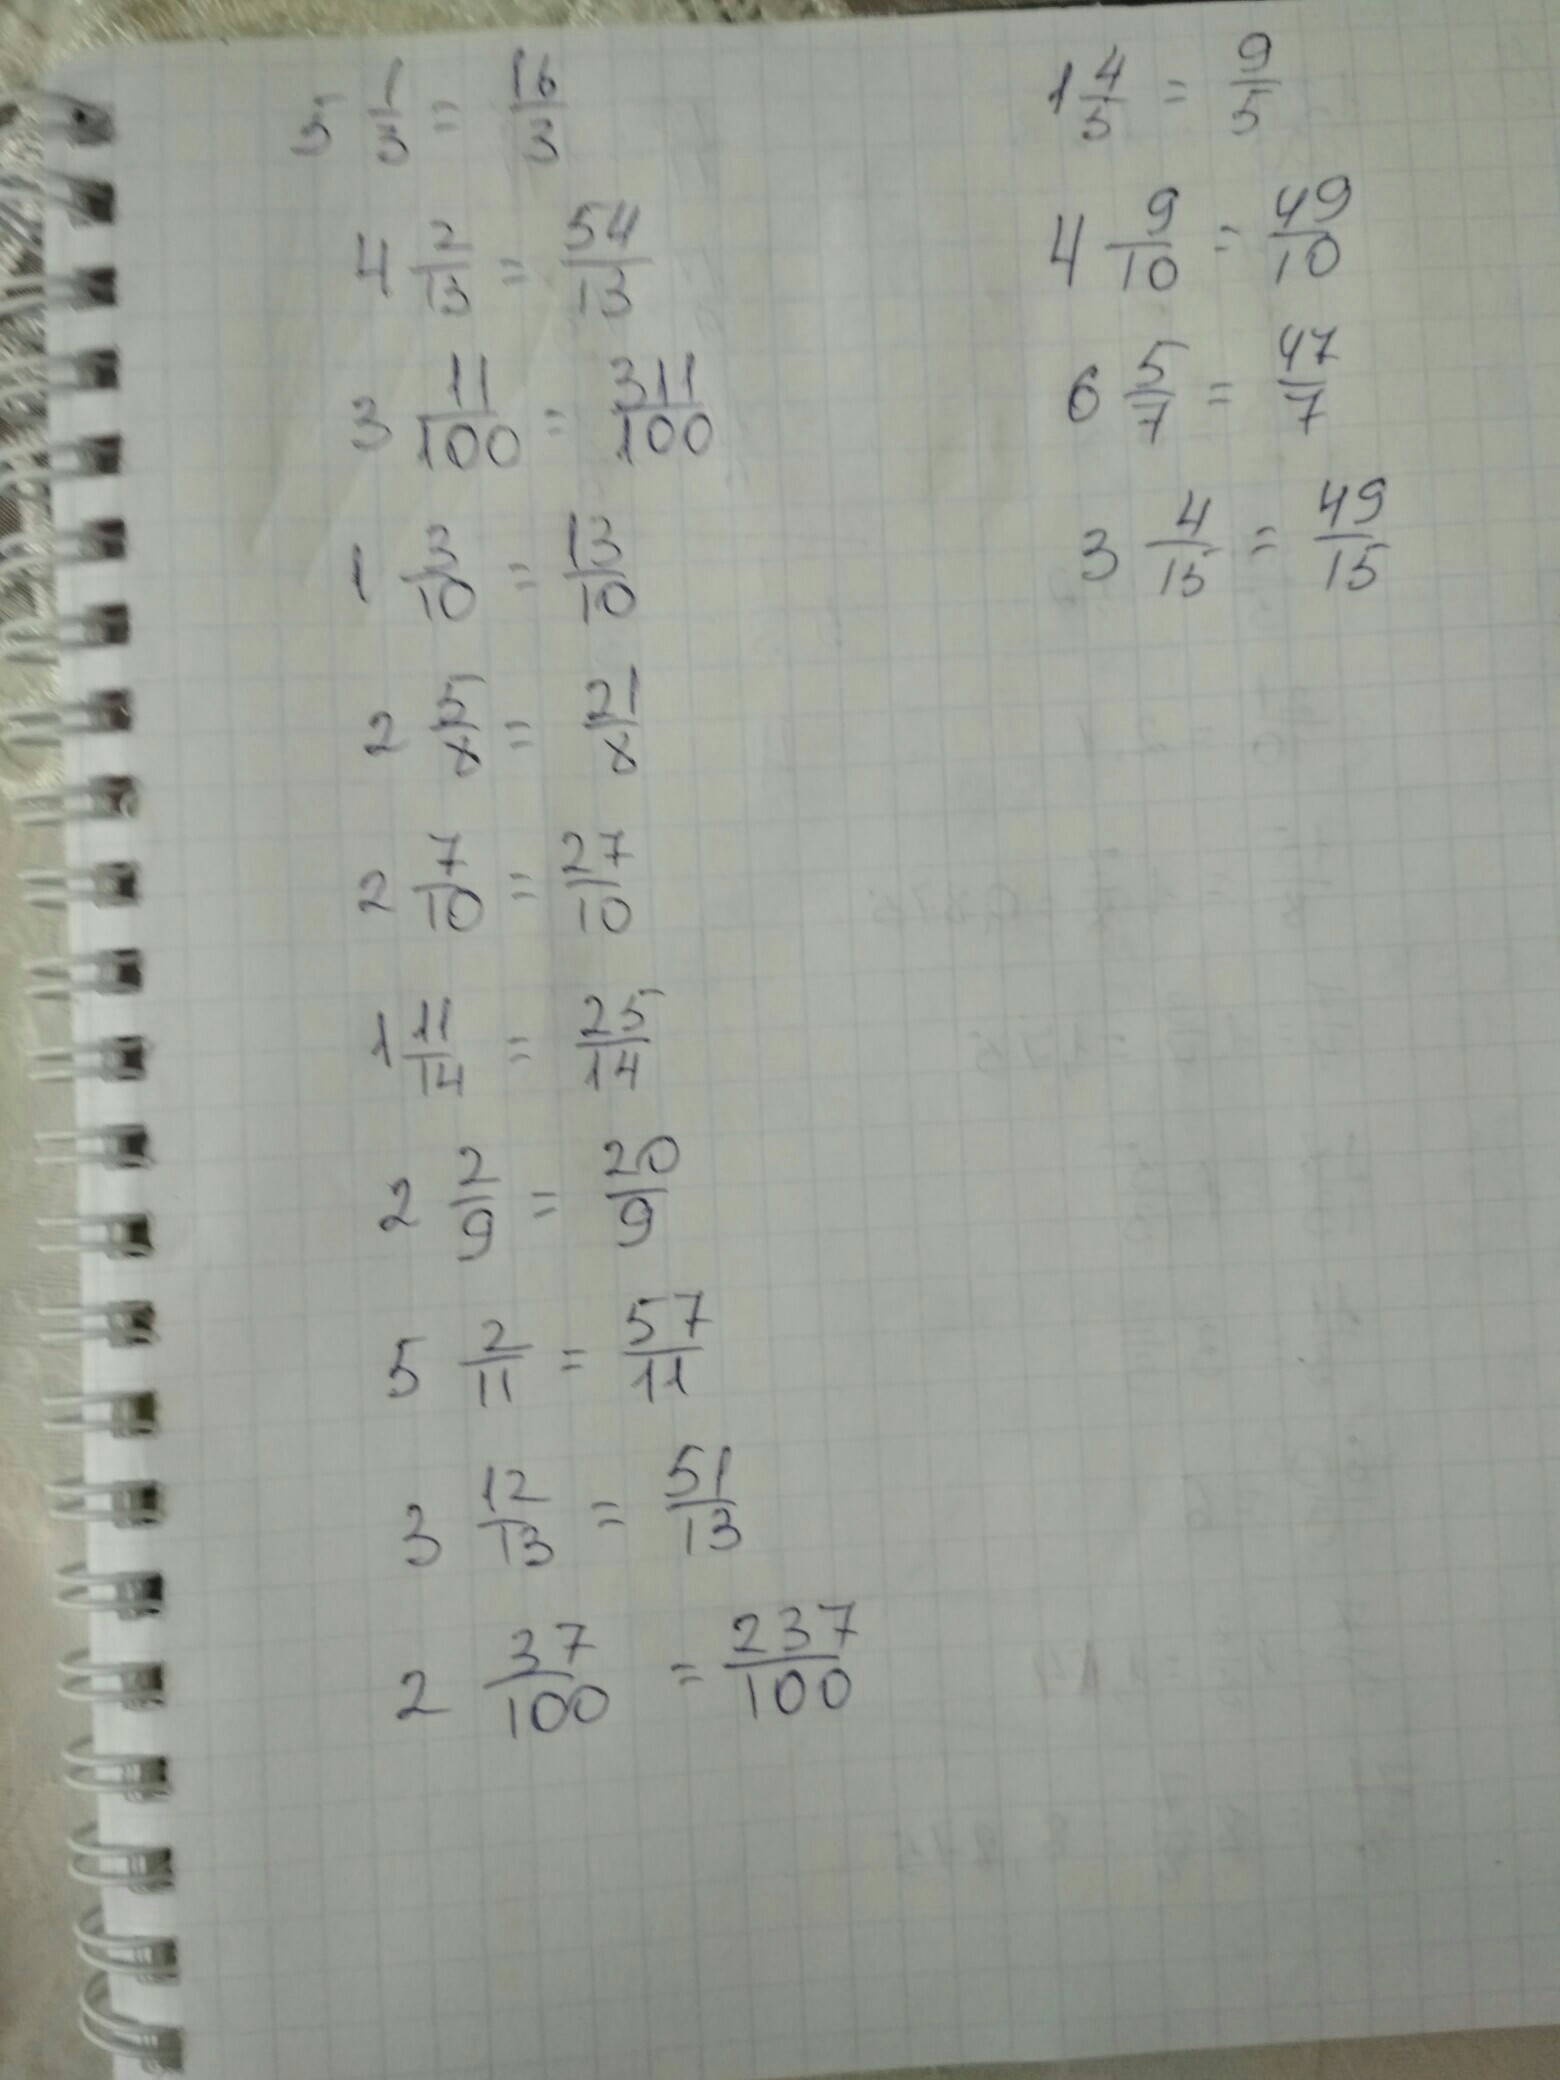 5 1/3 = 16/3
4 2/13 = 54/13
3 11/100 = 311/100
1 3/10 = 13/10
2 5/8 = 21/8
2 7/10 = 27/10
1 11/14 = 25/14
2 2/9 = 20/9
5 2/11 = 57/11
3 12/13 = 51/13
2 37/100 = 237/100
1 4/5 = 9/5
4 9/10 = 49/10
6 5/7 = 47/7
3 4/15 = 49/15